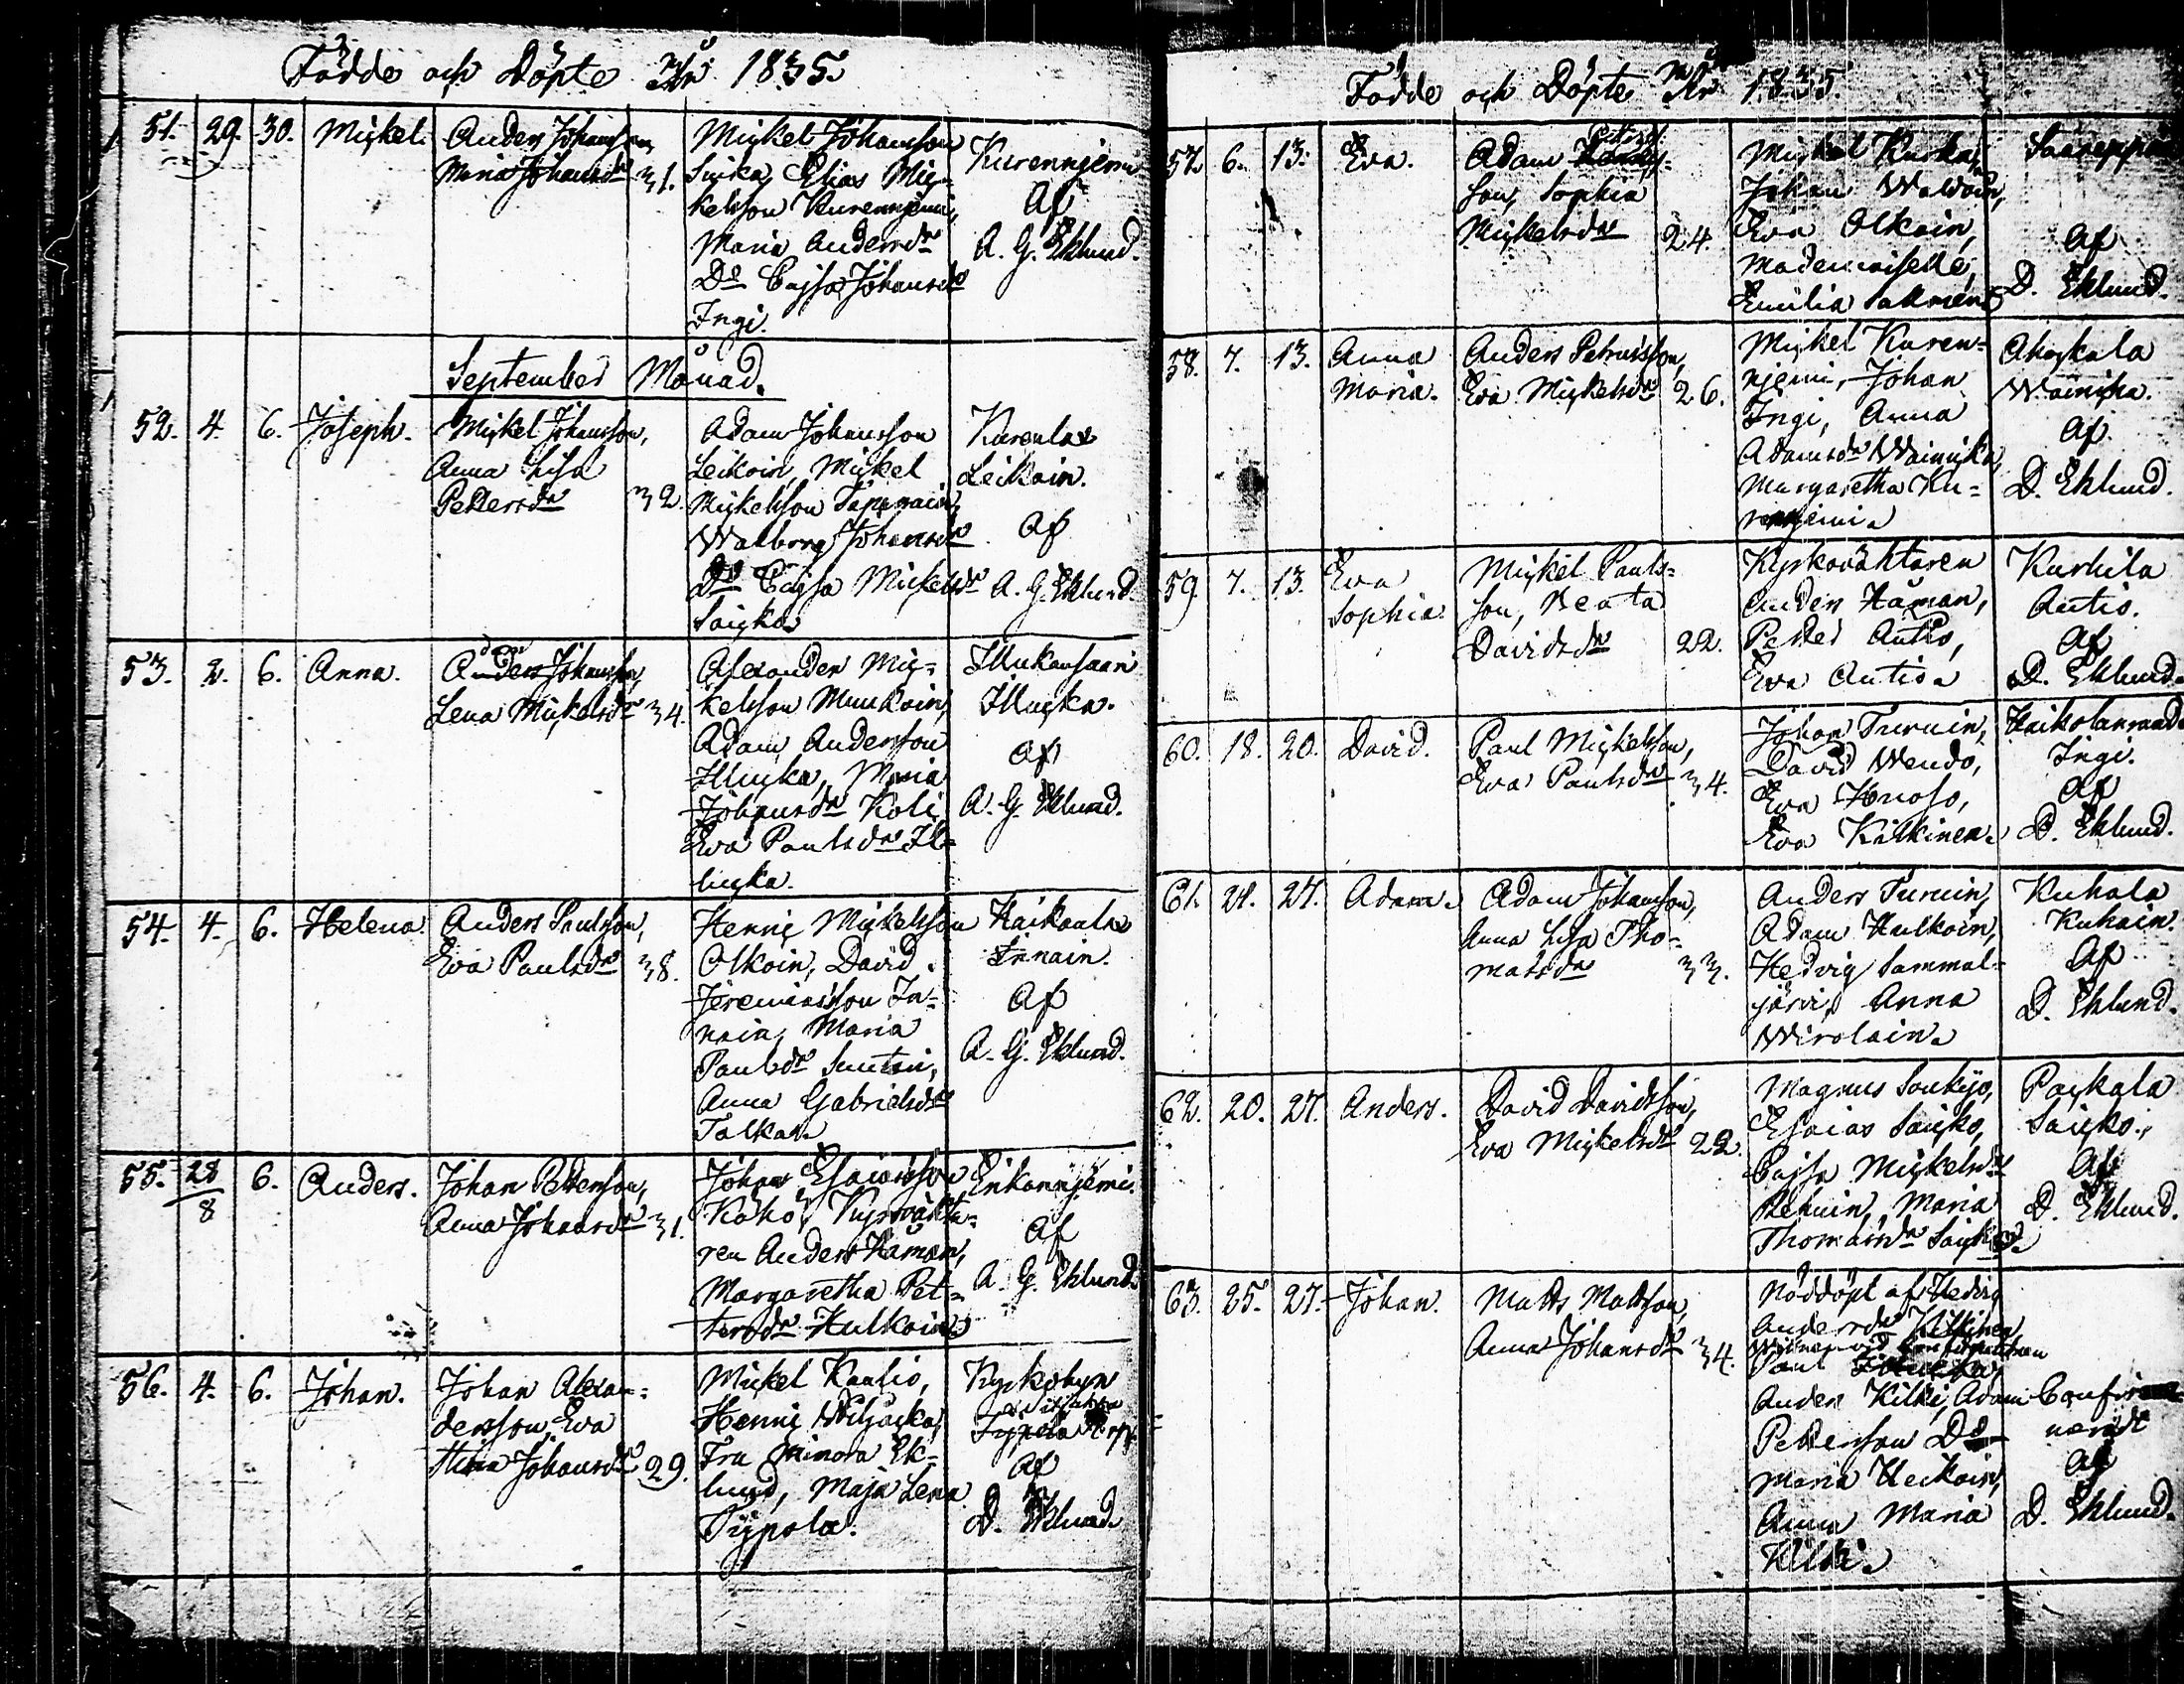 Födde och Döpte År 1835.
51. 29. 30. Mickel. Anders Johansson,
Maria Johansdr 31.
Mickel Johansson
Suika, Elias Mic-
kelsson Kurenniemi,
Maria Andersdr
Do Cajsa Johansdr
Ingi.
Kurenniemi
Af
A. G. Eklund.
September Månad.
52. 4. 6. Joseph. Mickel Johansson,
Anna Lisa
Pettersdr 32.
Adam Johansson
Leikoin, Mickel
Mickelsson
Walborg Johansdr
Do Cajsa Mickelsdr
Saicko.
Kurenla
Leikoin.
Af
A. G. Eklund.
53. 2. 6. Anna. Johansson,
Lena Mickelsdr 34.
Alexander Mic-
kelsson Muukoin,
Adam Andersson
Illucka, Maria
Johansdr Koli
Eva Paulsdr Il-
lucka.
Illukansaari
Illucka.
Af
A. G. Eklund.
54. 4. 6. Helena. Anders Paulsson,
Eva Paulsdr 38.
Henric Mickelsson
Olkoin, David
Jeremiasson In-
nain, Maria
Paulsdr Suutari,
Anna Gabrielsdr
Talka
Innain.
Af
A. G. Eklund.
55. 28/8 6. Anders. Johan Pettersson,
Anna Johansdr 31.
Johan Esaiasson
Kähö, Kyrkväkta-
ren Anders Håman,
Margaretha Pet-
tersdr Hulkoin
Af
A. G. Eklund.
56. 4. 6. Johan. Johan Alexan-
dersson, Eva
Johansdr 29.
Mickel Kaulio,
Henric
Fru Minora Ek-
lund, Maja Lena
Typpola.
Kyrkobyn
Af
D. Eklund.
Födde och Döpte År 1835.
57. 6. 13. Eva. Adam Peters-
son, Sophia
Mickelsdr 24.
Mickel
Johan
Eva Olkoin,
Mademoiselle,
Emilia Sallmén
Af
D. Eklund.
58. 7. 13. Anna
Maria. Anders Petersson,
Eva Mickelsdr 26.
Mickel Kuren-
niemi, Johan
Ingi, Anna
Adamsdr Wainicka,
Margaretha Ku-
renniemi.
Wainicka.
Af
D. Eklund.
59. 7. 13. Eva
Sophia. Mickel Pauls-
son, Beata
Davidsdr 22.
Kyrkoväktaren
Anders Håman,
Petter Autio,
Eva Autio.
Kurkila
Autio.
Af
D. Eklund.
60. 18. 20. David. Paul Mickelsson,
Eva Paulsdr 34.
Johan Turuin,
David Wendo,
Eva
Eva Kilkinen.
Ingi.
Af
D. Eklund.
61. 21. 27. Adam. Adam Johansson,
Anna Lisa Tho-
masdr 33.
Anders Turuin,
Adam Hulkoin,
Hedvig Sammal-
järvi, Anna
Wirolain.
Kuhala
Kuhain.
Af
D. Eklund.
62. 20. 27. Anders. David Davidsson,
Eva Mickelsdr 22.
Magnus Soukijo,
Esaias Saicko,
Cajsa Mickelsdr
Maria
Thomasdr Saicko.
Packala
Saicko.
Af
D. Eklund.
63. 25. 27. Johan. Matts Mattsson,
Anna Johansdr 34.
Nöddöpt af Hedvig
Andersdr Kilkinen,
Paul
Anders Kilki, Adam
Pettersson Do
Maria Heikoin,
Anna Maria
Kilki.
Confirme-
neradt
Af
D. Eklund.